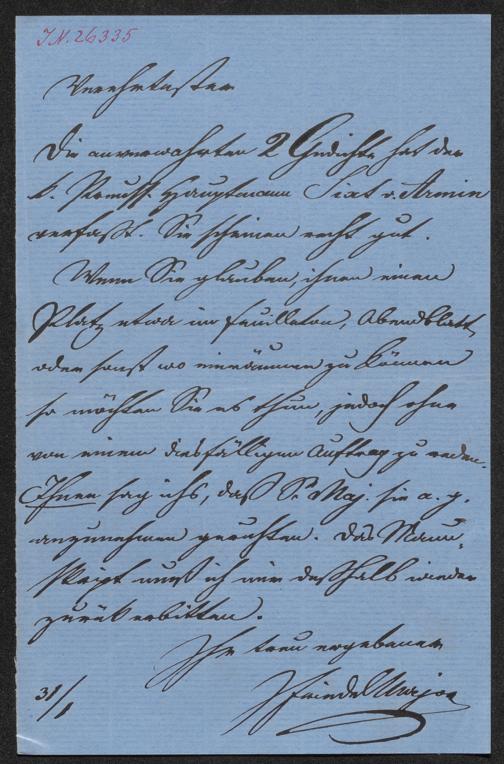 I.N. 26335
Verehrtester
Die anverwahrten 2 Gedichte hat der
k. Preuss. Hauptmann Sixt v. Armin
verfaßt. Sie scheinen recht gut.
Wenn Sie glauben, ihnen einen
Platz etwa im Feuilleton, Abendblatt,
oder sonst wo einräumen zu können
so möchten Sie es thun, jedoch ohne
von einem diesfälligen Auftrag zu reden.
Ihnen sag ichs, daß Se Maj. sie a. g.
anzunehmen geruhten. Das Manu-
skript muß ich mir deßhalb wieder
zurück erbitten.
Ihr treu ergebener
Major
31/1